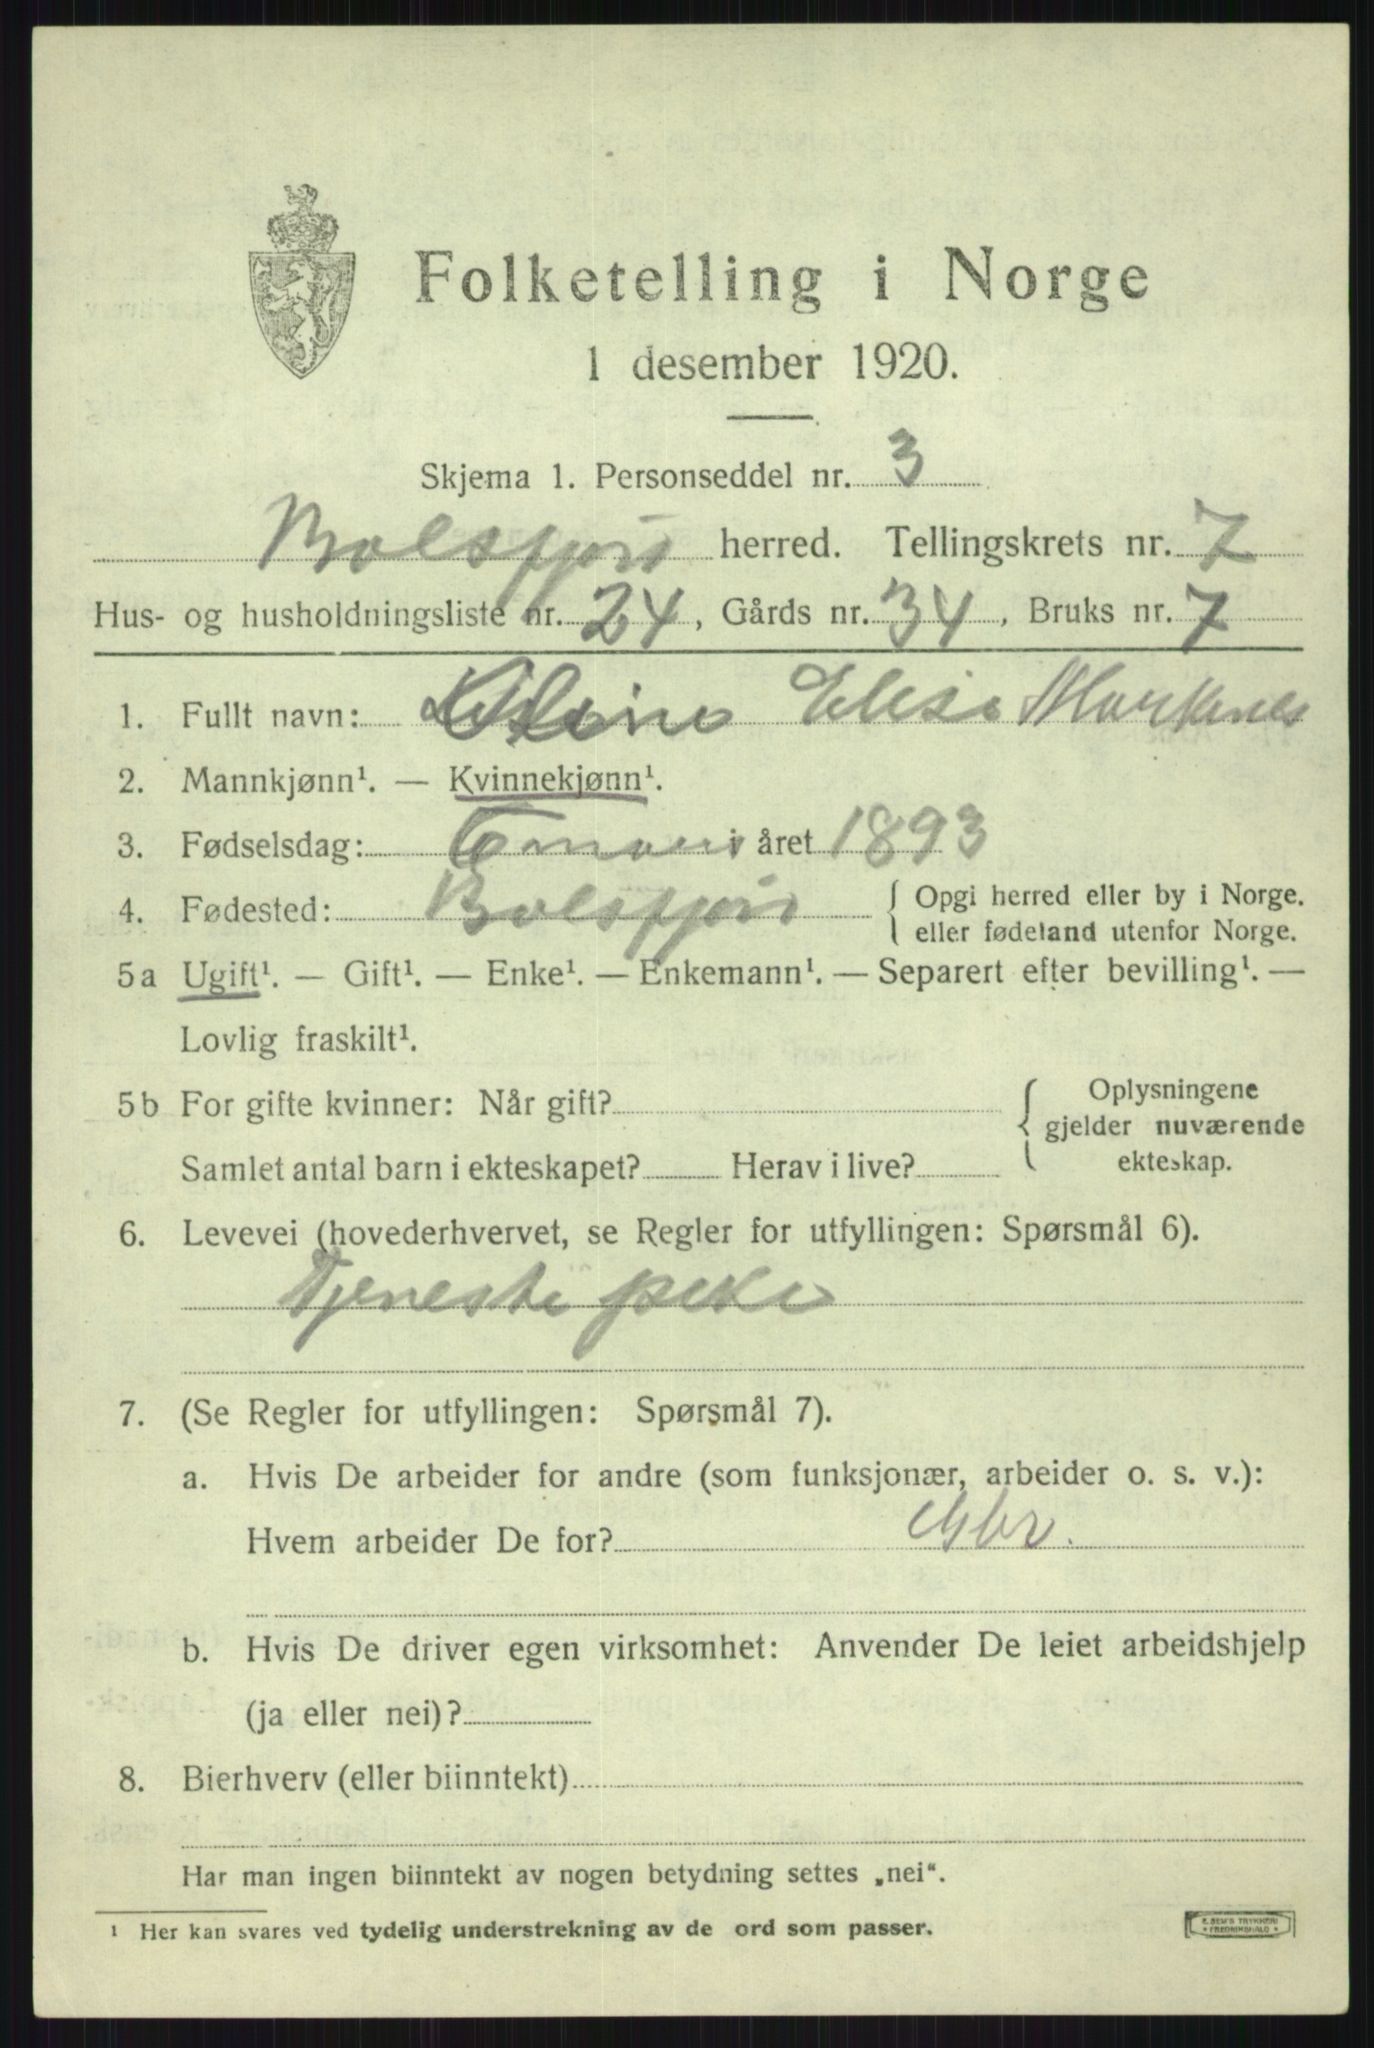 Folketelling i Norge
1 desember 1920.
Skjema 1. Personseddel nr. 3
Balsfjord herred. Tellingskrets nr. 7
Hus- og husholdningsliste nr. 24, Gårds nr. 34, Bruks nr. 7
1. Fullt navn: Elise Markenes
2. Mannkjønn¹. — Kvinnekjønn¹.
3. Fødselsdag: 6 mars i året 1893
4. Fødested: Balsfjord { Opgi herred eller by i Norge.
eller fødeland utenfor Norge.
5a Ugift¹. — Gift¹. — Enke¹. — Enkemann¹. — Separert efter bevilling¹. —
Lovlig fraskilt¹.
5b For gifte kvinner: Når gift? { Oplysningene
gjelder nuværende
Samlet antal barn i ekteskapet? Herav i live? ekteskap.
6. Levevei (hovederhvervet, se Regler for utfyllingen: Spørsmål 6).
Tjeneste pike
7. (Se Regler for utfyllingen: Spørsmål 7).
a. Hvis De arbeider for andre (som funksjonær, arbeider o. s. v.):
Hvem arbeider De for? Gbr.
b. Hvis De driver egen virksomhet: Anvender De leiet arbeidshjelp
(ja eller nei)?
8. Bierhverv (eller biinntekt)
Har man ingen biinntekt av nogen betydning settes „nei“.
¹ Her kan svares ved tydelig understrekning av de ord som passer.
E. SEM'S TRYKKERI
FREDRIKSHALD